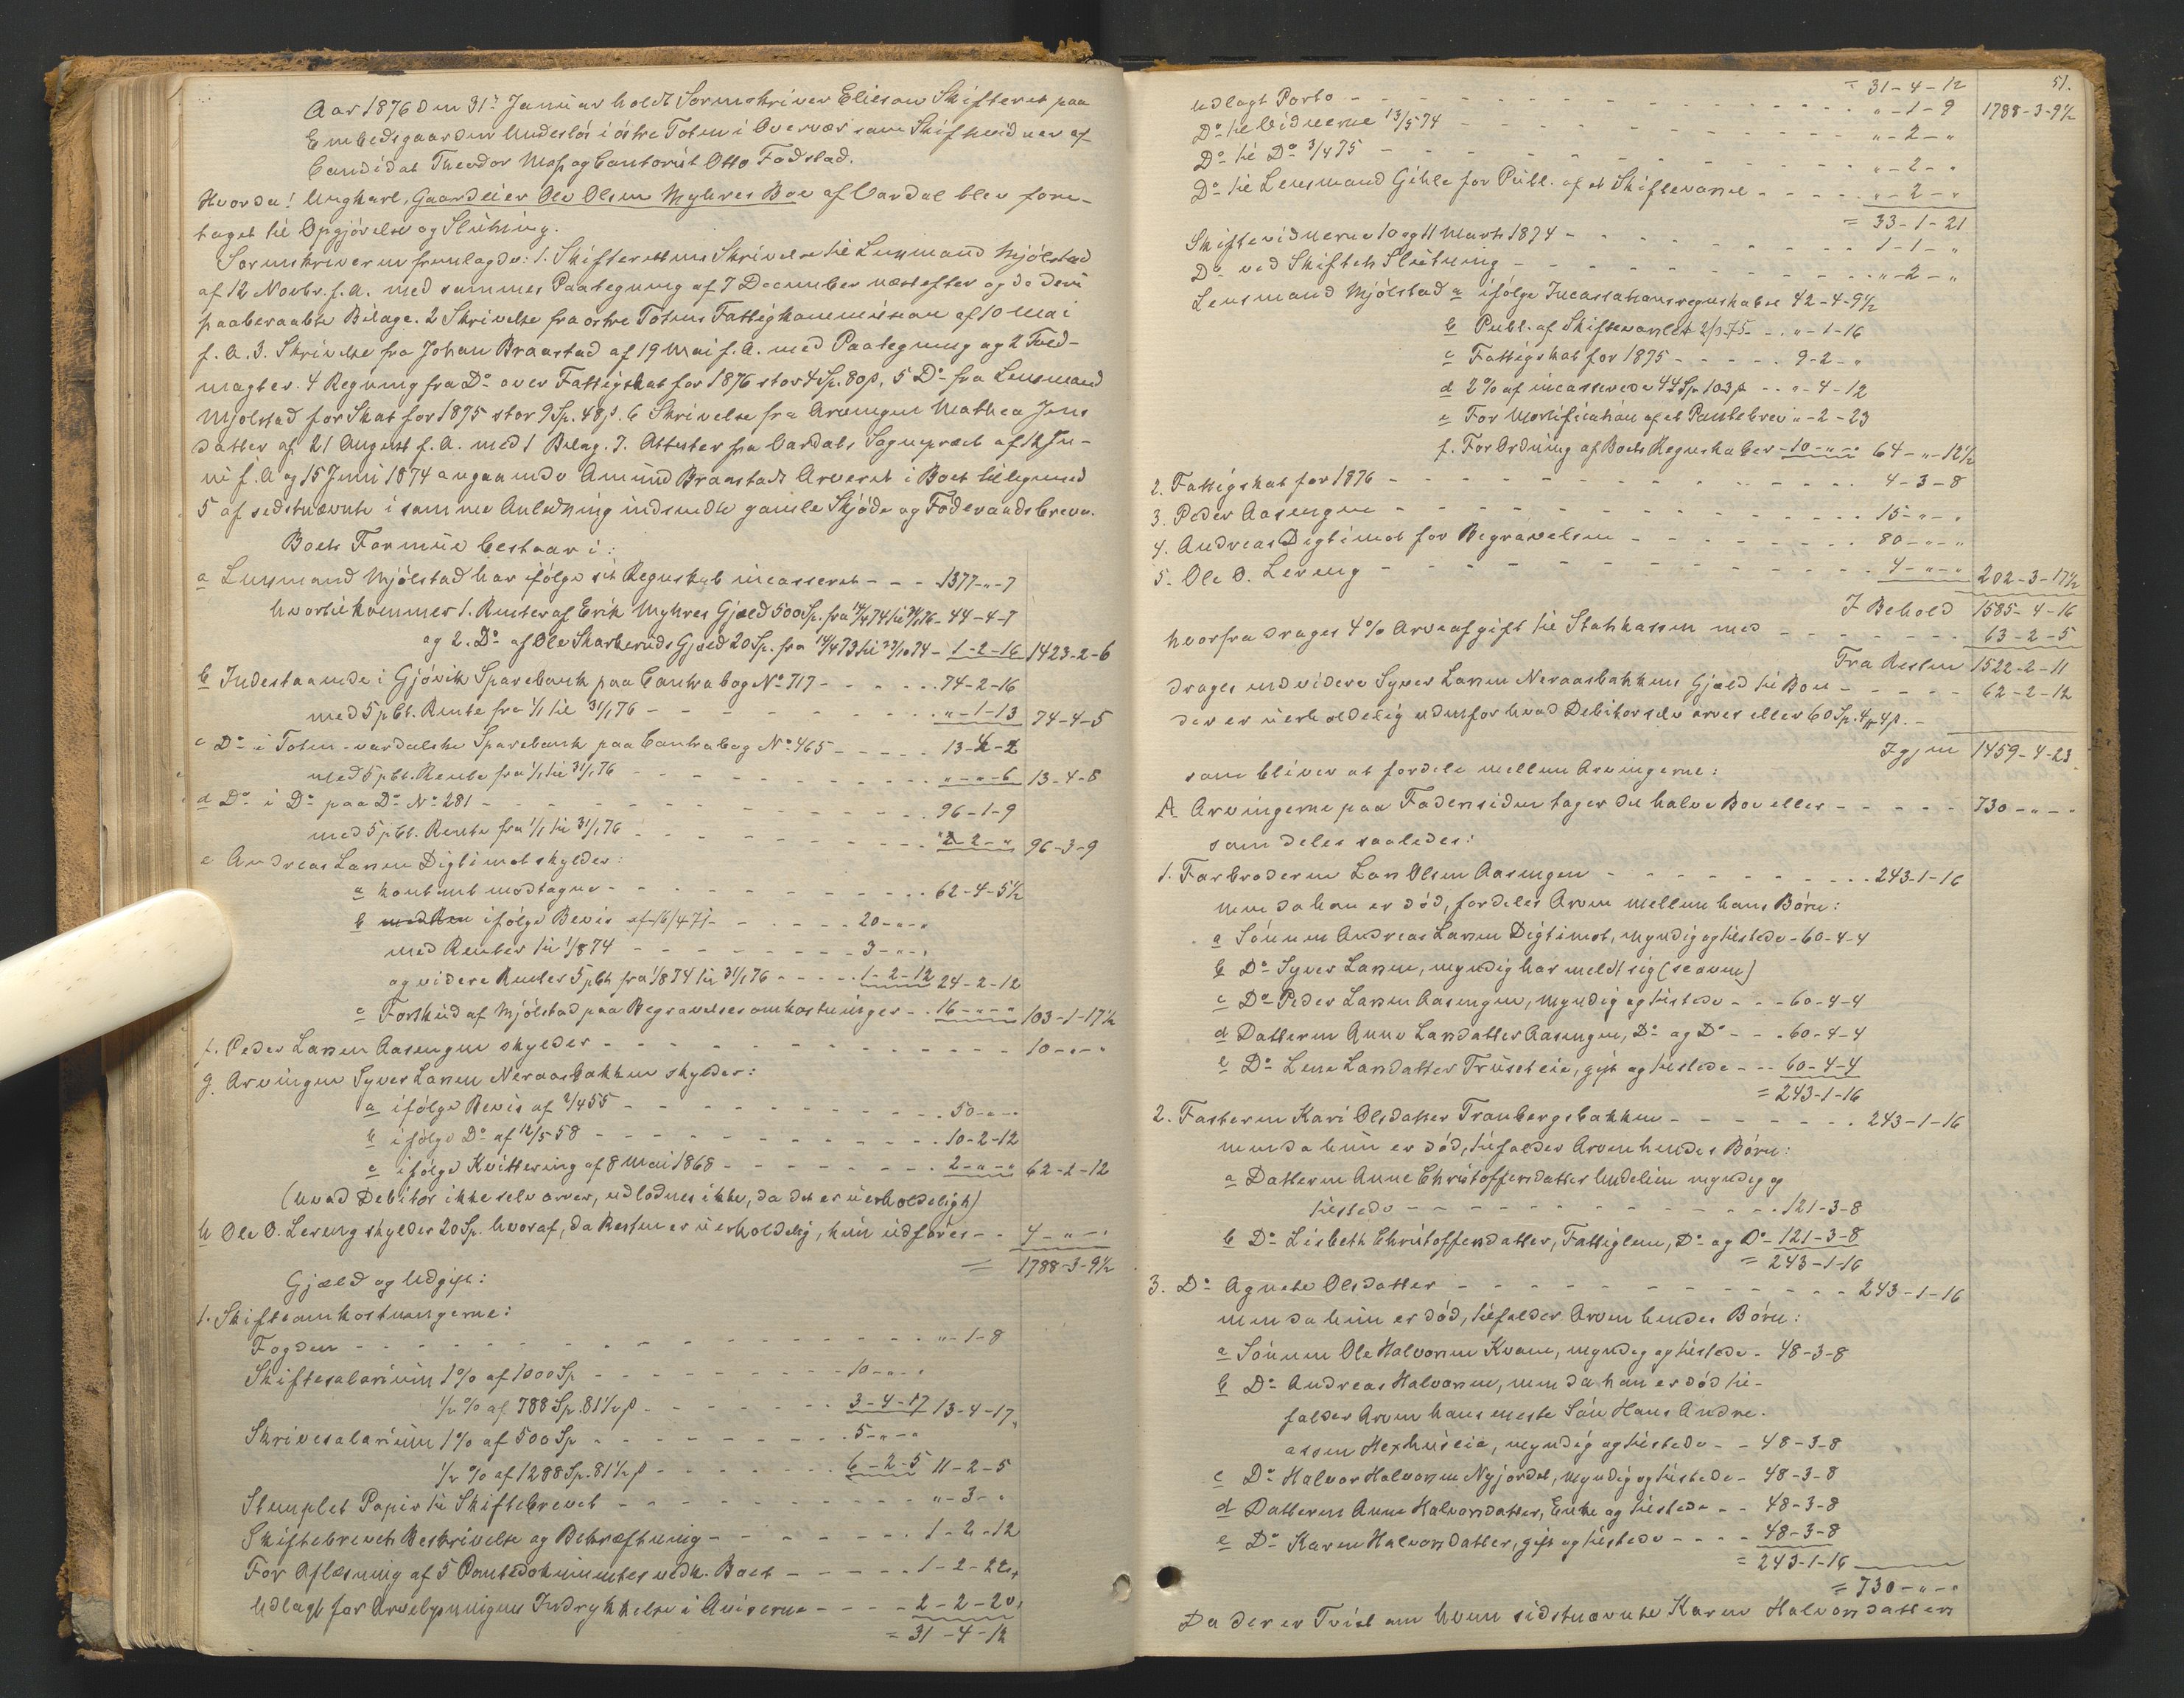 Aar 1876 den 31te Januar holdt Sorenskriver Elieson Skifteret paa
Embedsgaarden Undeslös i östre Toten i Overvær som Skiftevidner af
Candidat Theodor Mossog Cantorist Otto Fadstad.
Hvorda! Ungkarl, Gaardeier Ole Olsen Myhres Boe af Vardal blev fore-
taget til Opgjörelse og Slutning.
Sorenskriveren fremlagde: 1. Skifterettens Skrivelse til Lensmand Mjölstad
af 12 Novbr. f. A. med sammes Paategning af 7 December næstefter og de deri
paaberaabte Bilage. 2 Skrivelse fra östre Totens Fattigkommission af 10 Mai
f. A. 3. Skrivelse fra Johan Braastad af 19 Mai f. A. med Paategning og 2 Fuld-
magter. 4 Regning fra Do over Fattigskat for 1876 stor 4 Sp. 80 β, 5 Do fra Lensmand
Mjölstad for Skat for 1875 stor 9 Sp. 48 β. 6 Skrivelse fra Arvingen Mathea Jens
datter af 21 August f. A. med 1 Bilag. 7. Attester fra Vardals Sognepræst af 12 Ju-
ni f. A og 15 Juni 1874 angaaende Amund Braastads Arveret i Boet tilligemed
5 af sidstnævnte i samme Anledning indsendte gamle Skjöde og Föderaadsbreve.
Boets Formue bestaar i:
a Lensmand Mjölstad har ifölge sit Regnskab incasseret - - - 1377-"-7
hvortil kommer 1. Renter af Erik Myhres Gjæld 500 Sp. fra 14/4 74 til 31/1 76 - 44-4-7
og 2. Do af Ole Skarheruds Gjæld 20 Sp. fra 14/4 73 til 23/10 74 - 1-2-16 1423-2-6
b Indestaaende i Gjövik Sparebank paa Contrabog No 717 - - - 74-2-16
med 5 pCt. Rente fra 1/1 til 31/1 76 - - - "-1-13 74-4-5
c Do i Toten-vardalske Sparebank paa Contrabog No 465 - - - 13-4-2
med 5 pCt. Rente fra 1/1 til 31/1 76 - - - "-"-6 13-4-8
d Do i Do paa Do No 281 - - - 96-1-9
med 5 pCt. Rente fra 1/1 til 31/1 76 - - - "2-" 96-3-9
e Andreas Larsen Digtimot skylder:
a kontant modtagne - - - 62-4-5½
b ifölge Bevis af 16/4 71 - - - 20-"-"
med Renter til 1/8 74 - - - 3-"-"
og videre Renter 5 pCt fra 1/8 74 til 31/1 76 - - - 1-2-12 24-2-12
c Forskud af Mjölstad paa Begravelsesomkostninger - - 16-"-" 103-1-17½
f. Peder Larsen Aasengen skylder - - - 10-"-"
g. Arvingen Syver Larsen Neraasbakken skylder:
a ifölge Bevis af 2/4 55 - - - 50-"-"
b ifölge Do af 12/5 58 - - - 10-2-12
c ifölge Kvittering af 8 Mai 1868 - - - 2-"-" 62-2-12
(hvad Debitor ikke selv arver, udloddes ikke, da det er uerholdeligt)
h Ole O. Lereng skylder 20 Sp. hvoraf, da Resten er uerholdelig, kun udföres - - 4-"-"
= 1788-3-9½
Gjæld og Udgift:
1. Skifteomkostningerne:
Fogden - - - "-1-8
Skiftesalarium 1% af 1000 Sp - - - 10-"-"
½ % af 788 Sp. 81½ β - - - 3-4-17 13-4-17
Skrivesalarium 1% af 500 Sp - - - 5-"-"
½ % af 1288 Sp. 81½ β - - - 6-2-5 11-2-5
Stemplet Papir til Skiftebrevet - - - "-3-"
Skiftebrevets Beskrivelse og Bekræftning - - - 1-2-12
For Aflæsning af 5 Pantedokumenter vedk. Boet - - - 1-2-22
Udlagt for Arvelysningens Indrykkelse i Aviserne - - - 2-2-20
= 31-4-12
51.
= 31-4-12
udlagt Porto - - - "-1-9 1788-3-9½
Do til Vidnerne 13/5 74 - - - "-2-"
Do til Do 3/4 75 - - - "-2-"
Do til Lensmand Gihle for Publ. af et Skiftevarsel - - - "-2-"
= 33-1-21
Skiftevidnerne 10 og 11 Marts 1874 - - - 1-1-"
Do ved Skiftets Slutning - - - "-2-"
Lensmand Mjölstad a ifölge Incassationsregnskabet 42-4-9½
b Publ. af Skiftevarslet 2/3 75 - - "-1-16
c Fattigskat for 1875 - - - 9-2-"
d 2% af incasserede 44 Sp 103 β - - "-4-12
e For Mortification af et Pantebrev "-2-23
f. For Ordning af Boets Regnskaber - 10-"-" 64-"-12½
2. Fattigskat for 1876 - - - 4-3-8
3. Peder Aasengen - - - 15-"-"
4. Andreas Digtimot for Begravelsen - - - 80-"-"
5. Ole O. Lereng - - - 4-"-" 202-3-17½
I Behold 1585-4-16
hvorfra drages 4% Arveafgift til Statskassen med - - - 63-2-5
Fra Resten 1522-2-11
drages endvidere Syver Larsen Neraasbakkens Gjæld til Boen - - - 62-2-12
der er uerholdelig udenfor hvad Debitor selv arver eller 60 Sp. 4 β 4 β. -
Igjen 1459-4-23
som bliver at fordele mellem Arvingerne:
A Arvingerne paa Fadersiden tager det halve Bo eller - - - 730-"-"
som deles saaledes:
1. Farbroderen Lars Olsen Aasengen - - - 243-1-16
men da han er död, fordeles Arven mellem hans Börn:
a Sönnen Andreas Larsen Digtimot, myndig og tilstede - 60-4-4
b Do Syver Larsen, myndig har meldt sig (se oven)
c Do Peder Larsen Aasengen, myndig og tilstede - - - 60-4-4
d Datteren Anne Larsdatter Aasengen, Do og Do - - - 60-4-4
e Do Lene Larsdatter Truseteie, gift og tilstede - - 60-4-4
= 243-1-16
2. Fasteren Kari Olsdatter Tranbergsbakken - - - 243-1-16
men da hun er död, tilfalder Arven hendes Börn:
a Datteren Anne Christoffersdatter Undelien myndig og
tilstede - - - 121-3-8
b Do Lisbeth Christoffersdatter, Fattiglem, Do og Do - 121-3-8
= 243-1-16
3. Do Agnete Olsdatter - - - 243-1-16
men da hun er död, tilfalder Arven hendes Börn:
a Sönnen Ole Halvorsen Kvam, myndig og tilstede - 48-3-8
b Do Andreas Halvorsen, men da han er död til-
falder Arven hans eneste Sön Hans Andre-
assen Hexhuseie, myndig og tilstede - - 48-3-8
c Do Halvor Halvorsen Nyjordet, myndig og tilstede - 48-3-8
d Datteren Anne Halvorsdatter, Enke og tilstede - - 48-3-8
e Do Karen Halvorsdatter, gift og tilstede - - - 48-3-8
= 243-1-16
= 730-"-"
Da der er Tvist om hvem sidstnævnte Karen Halvorsdatters